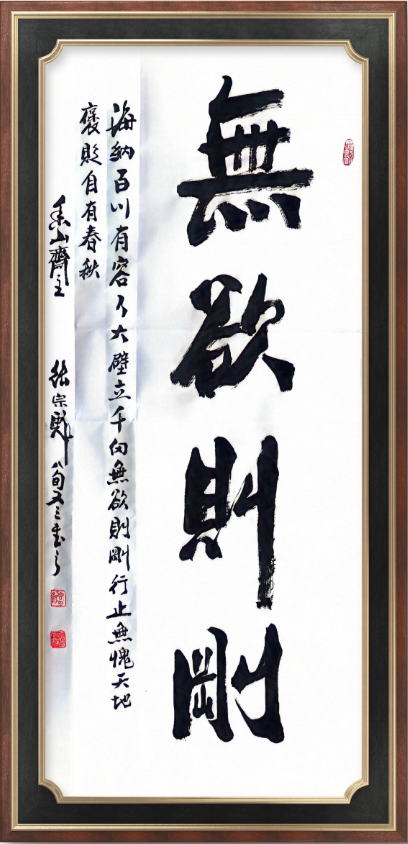 無欲則剛
海納百川有容乃大壁立千仞無欲則剛行止無愧天地
褒貶自有春秋
香山齋主 張宗 八旬又三書